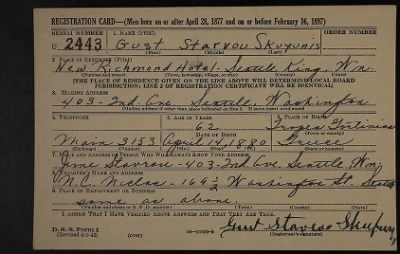 REGISTRATION CARD—(Men born on or after April 28, 1877 and on or before February 16, 1897)
SERIAL NUMBER 1. NAME (Print) ORDER NUMBER
U 2443 Gust Starvou
(First) (Middle) (Last)
2. PLACE OF RESIDENCE (Print)
New Richmond Hotel Seattle King, Wn.
(Number and street) (Town, township, village, or city) (County) (State)
[THE PLACE OF RESIDENCE GIVEN ON THE LINE ABOVE WILL DETERMINE LOCAL BOARD
JURISDICTION; LINE 2 OF REGISTRATION CERTIFICATE WILL BE IDENTICAL]
3. MAILING ADDRESS
403-2nd Ave Seattle, Washington
[Mailing address if other than place indicated on line 2. If same insert word same]
4. TELEPHONE 5. AGE IN YEARS 6. PLACE OF BIRTH
62
DATE OF BIRTH
Main 3153 April 14, 1880 Greece
(Exchange) (Number) (Mo.) (Day) (Yr.) (State or country)
7. NAME AND ADDRESS OF PERSON WHO WILL ALWAYS KNOW YOUR ADDRESS
403-2nd Ave. Seattle Wn.
8. EMPLOYER'S NAME AND ADDRESS
169½ Washington St. Seattle
9. PLACE OF EMPLOYMENT OR BUSINESS
same as above.
(Number and street or R. F. D. number) (Town) (County) (State)
I AFFIRM THAT I HAVE VERIFIED ABOVE ANSWERS AND THAT THEY ARE TRUE.
D. S. S. Form 1
(Revised 4-1-42) (over) Gust
(Registrant's signature)